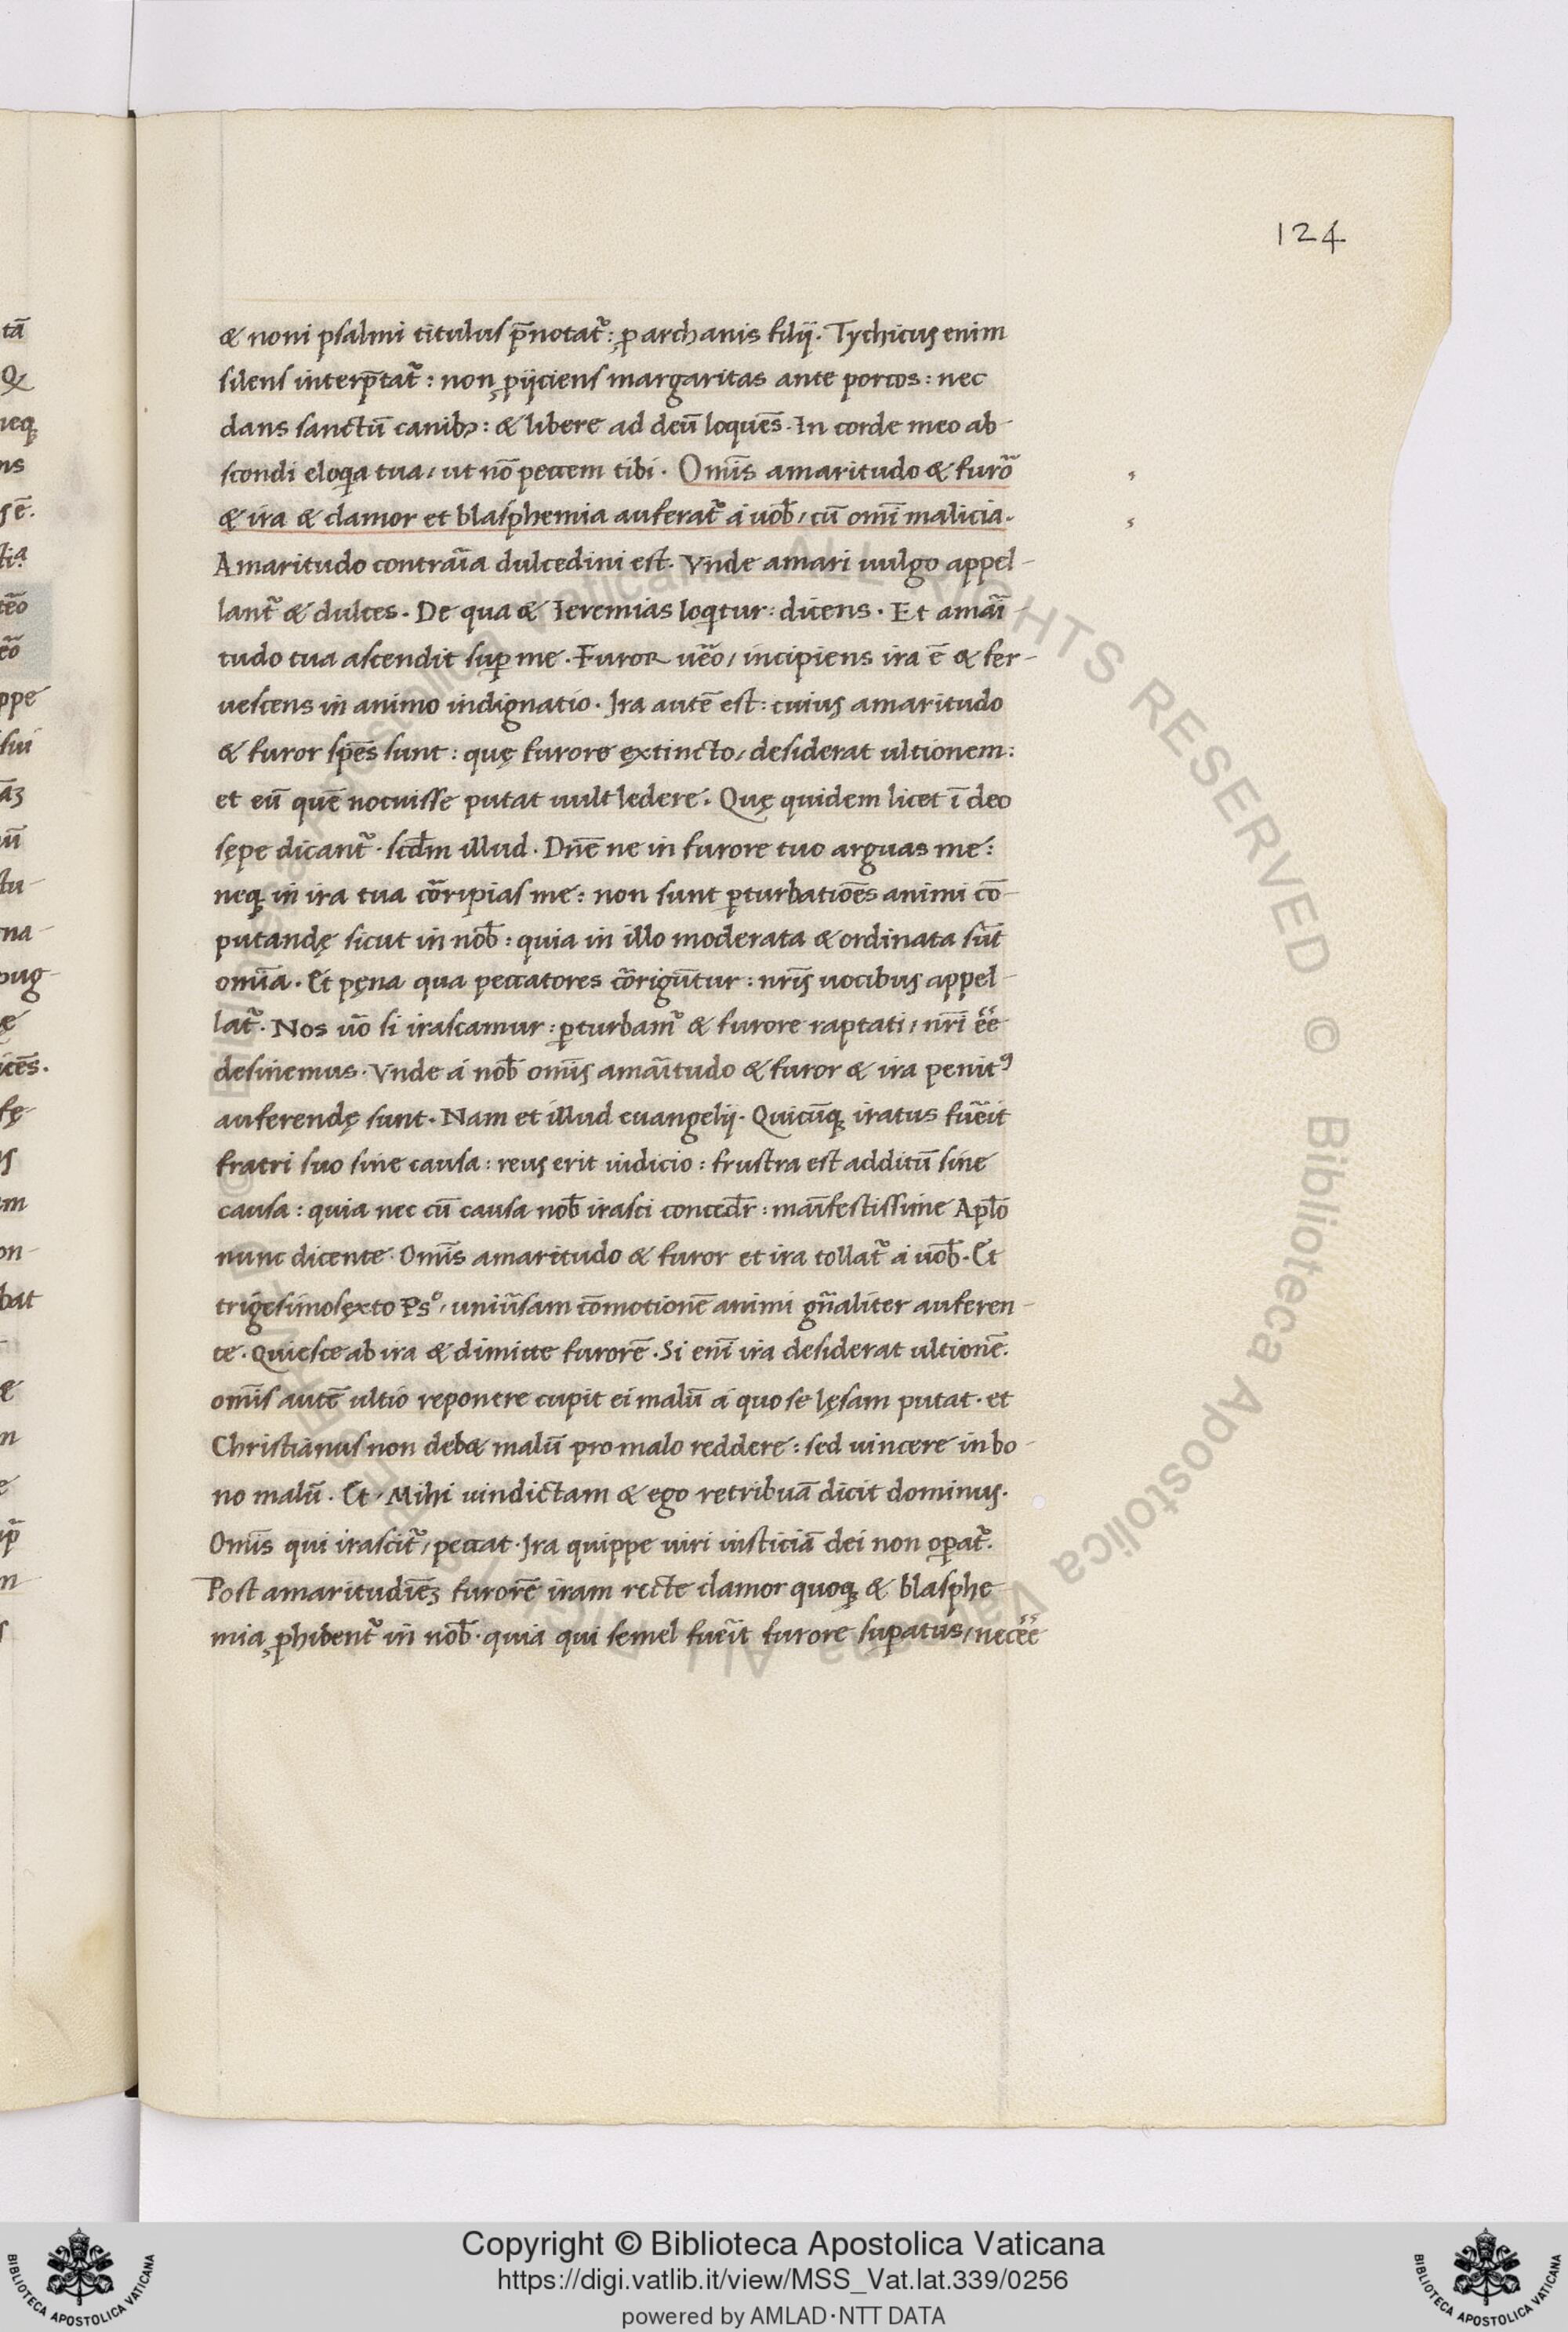 124
tā
&
neqꝫ
ns
sē.
tia
teō
eō
ppe
sui
aꝫ
ū
tu-
na-
pug-
ę
icēs.
fę-
s
m
on-
bat
&
n
e
n
& noni psalmi titulus p̄notat᷑: ꝓ archanis filij. Tychicus enim
silens interp̄tat᷑: non ꝓijciens margaritas ante porcos: nec
dans sanctū canibꝫ: & libere ad deū loquēs. In corde meo ab-
scondi eloqa tua, ut nō peccem tibi. Om̄is amaritudo & furō
& ira & clamor et blasphemia auferat᷑ á uob̄, cū om̄i malicia.
Amaritudo contrāia dulcedini est. Vnde amari uulgo appel-
lant᷑ & dulces. De qua & Ieremias loqtur: dicens. Et amāi-
tudo tua ascendit suꝑ me. Furor uēo, incipiens ira ē & fer-
uescens in animo indignatio. Ira autē est: cuius amaritudo
& furor spēs sunt: quę furore extincto, desiderat ultionem:
et eū quē nocuisse putat uult ledere. Quę quidem licet ī deo
sępe dicant᷑. scd̄m illud. Dn̄e ne in furore tuo arguas me:
neqꝫ in ira tua cōripias me: non sunt ꝑturbatiōes animi cō-
putandę sicut in nob̄: quia in illo moderata & ordinata sūt
om̄ia. Et pęna qua peccatores cōrigūtur: nr̄is uocibus appel-
lat᷑. Nos ūo si irascamur: ꝑturbam᷑ & furore raptati, nr̄i ēe
desinemus. Vnde á nob̄ om̄is amāitudo & furor & ira penitꝰ
auferendę sunt. Nam et illud euangelij. Quicūqꝫ iratus fuēit
fratri suo sine causa: reus erit iudicio: frustra est additū sine
causa: quia nec cū causa nob̄ irasci conced̄r: māifestissime Apl̄o
nunc dicente. Om̄is amaritudo & furor et ira tollat᷑ á uob̄. Et
trigesimosęxto Psº, uniūsam cōmotionē animi gn̄aliter auferen-
te. Quiesce ab ira & dimitte furorē. Si enī ira desiderat ultionē.
om̄is autē ultio reponere cupit ei malū á quo se lęsam putat. et
Christianus non deb& malū pro malo reddere: sed uincere in bo-
no malū. Et, Mihi uindictam & ego retribuā dicit dominus.
Om̄is qui irascit᷑, peccat. Ira quippe uiri iusticiā dei non oꝑat᷑.
Post amaritudiēꝫ furorē iram recte clamor quoqꝫ & blasphe-
mia ꝓhibent᷑ in nob̄. quia qui semel fuēit furore suꝑatus, necēe
Copyright © Biblioteca Apostolica Vaticana
https://digi.vatlib.it/view/MSS_Vat.lat.339/0256
powered by AMLAD·NTT DATA
BIBLIOTECA APOSTOLICA VATICANA
BIBLIOTECA APOSTOLICA VATICANA